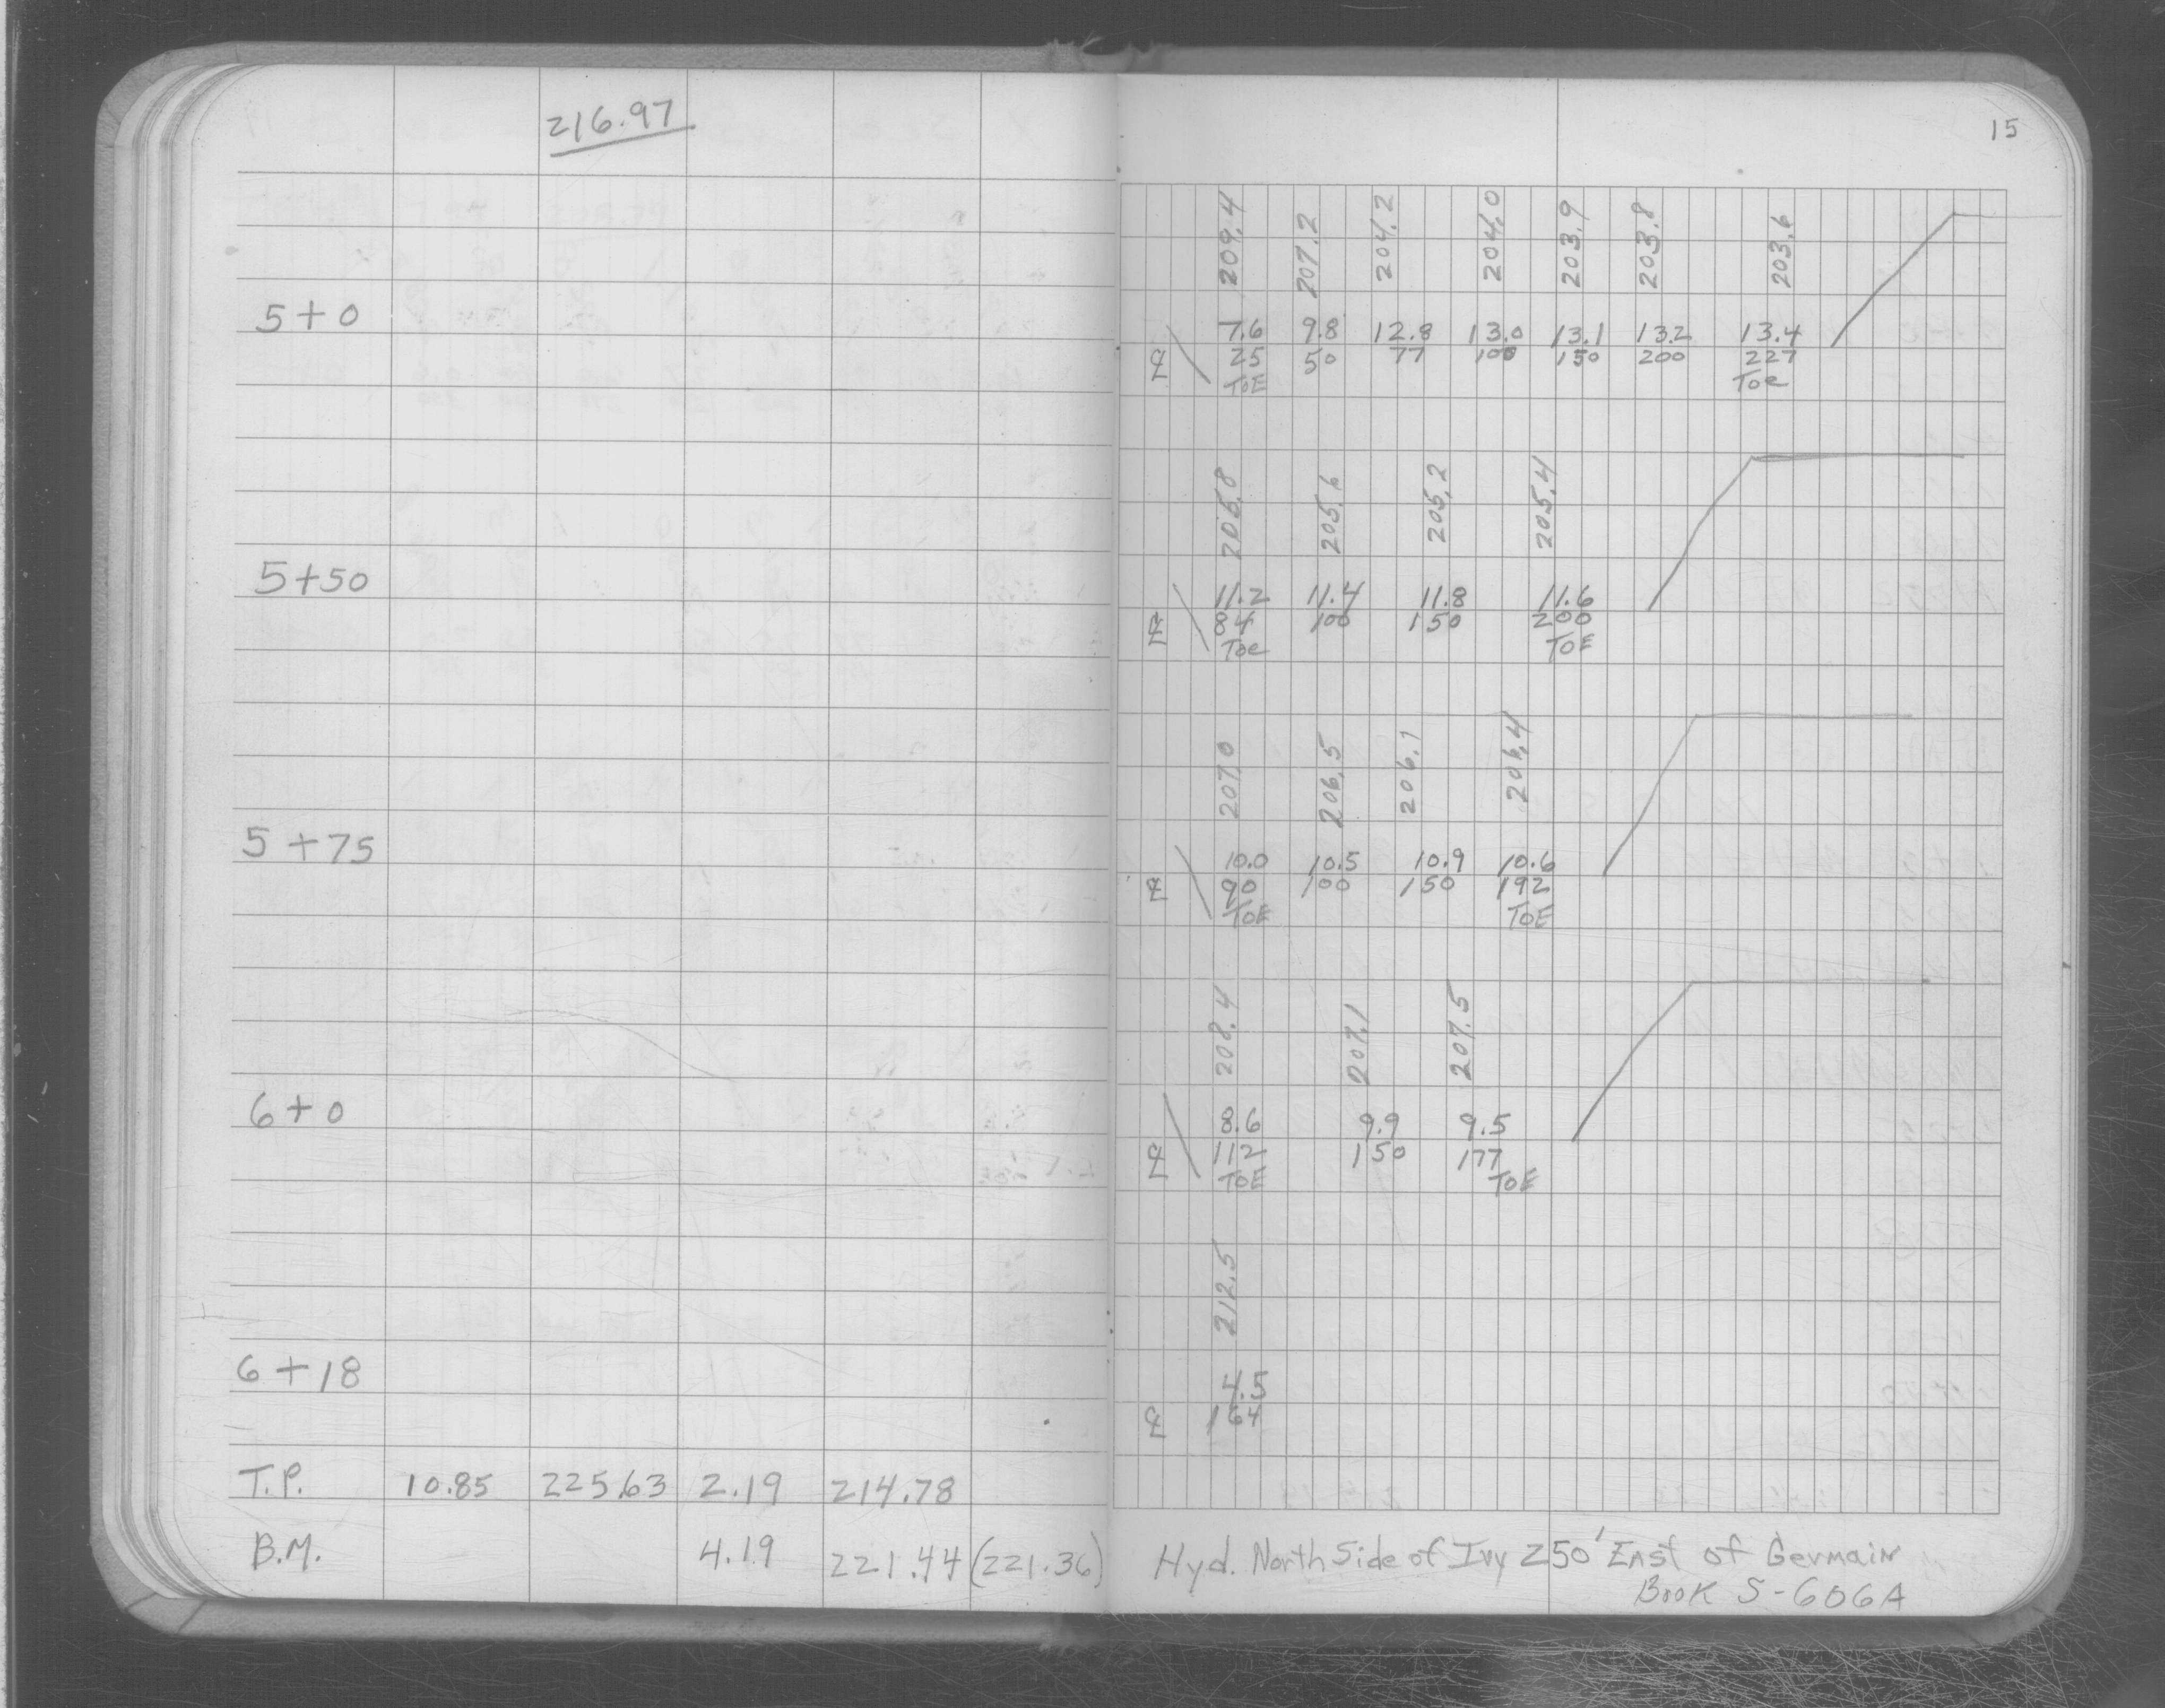 216.97
15
209.4 207.2 204.2 204.0 203.9 203.8 203.6
5+0 7.6 9.8 12.8 13.0 13.1 13.2 13.4
℄ 25 50 77 100 150 200 227
TOE Toe
205.8 205.6 205.2 205.4
5+50 11.2 11.4 11.8 11.6
℄ 84 100 150 200
Toe TOE
207.0 206.5 206.1 206.4
5+75 10.0 10.5 10.9 10.6
℄ 90 100 150 192
TOE TOE
208.4 207.1 207.5
6+0 8.6 9.9 9.5
℄ 112 150 177
TOE TOE
212.5
6+18 4.5
℄ 164
T.P. 10.85 225.63 2.19 214.78
B.M. 4.19 221.44 (221.36) Hyd. North Side of Ivy 250' East of Germain
Book S-606A